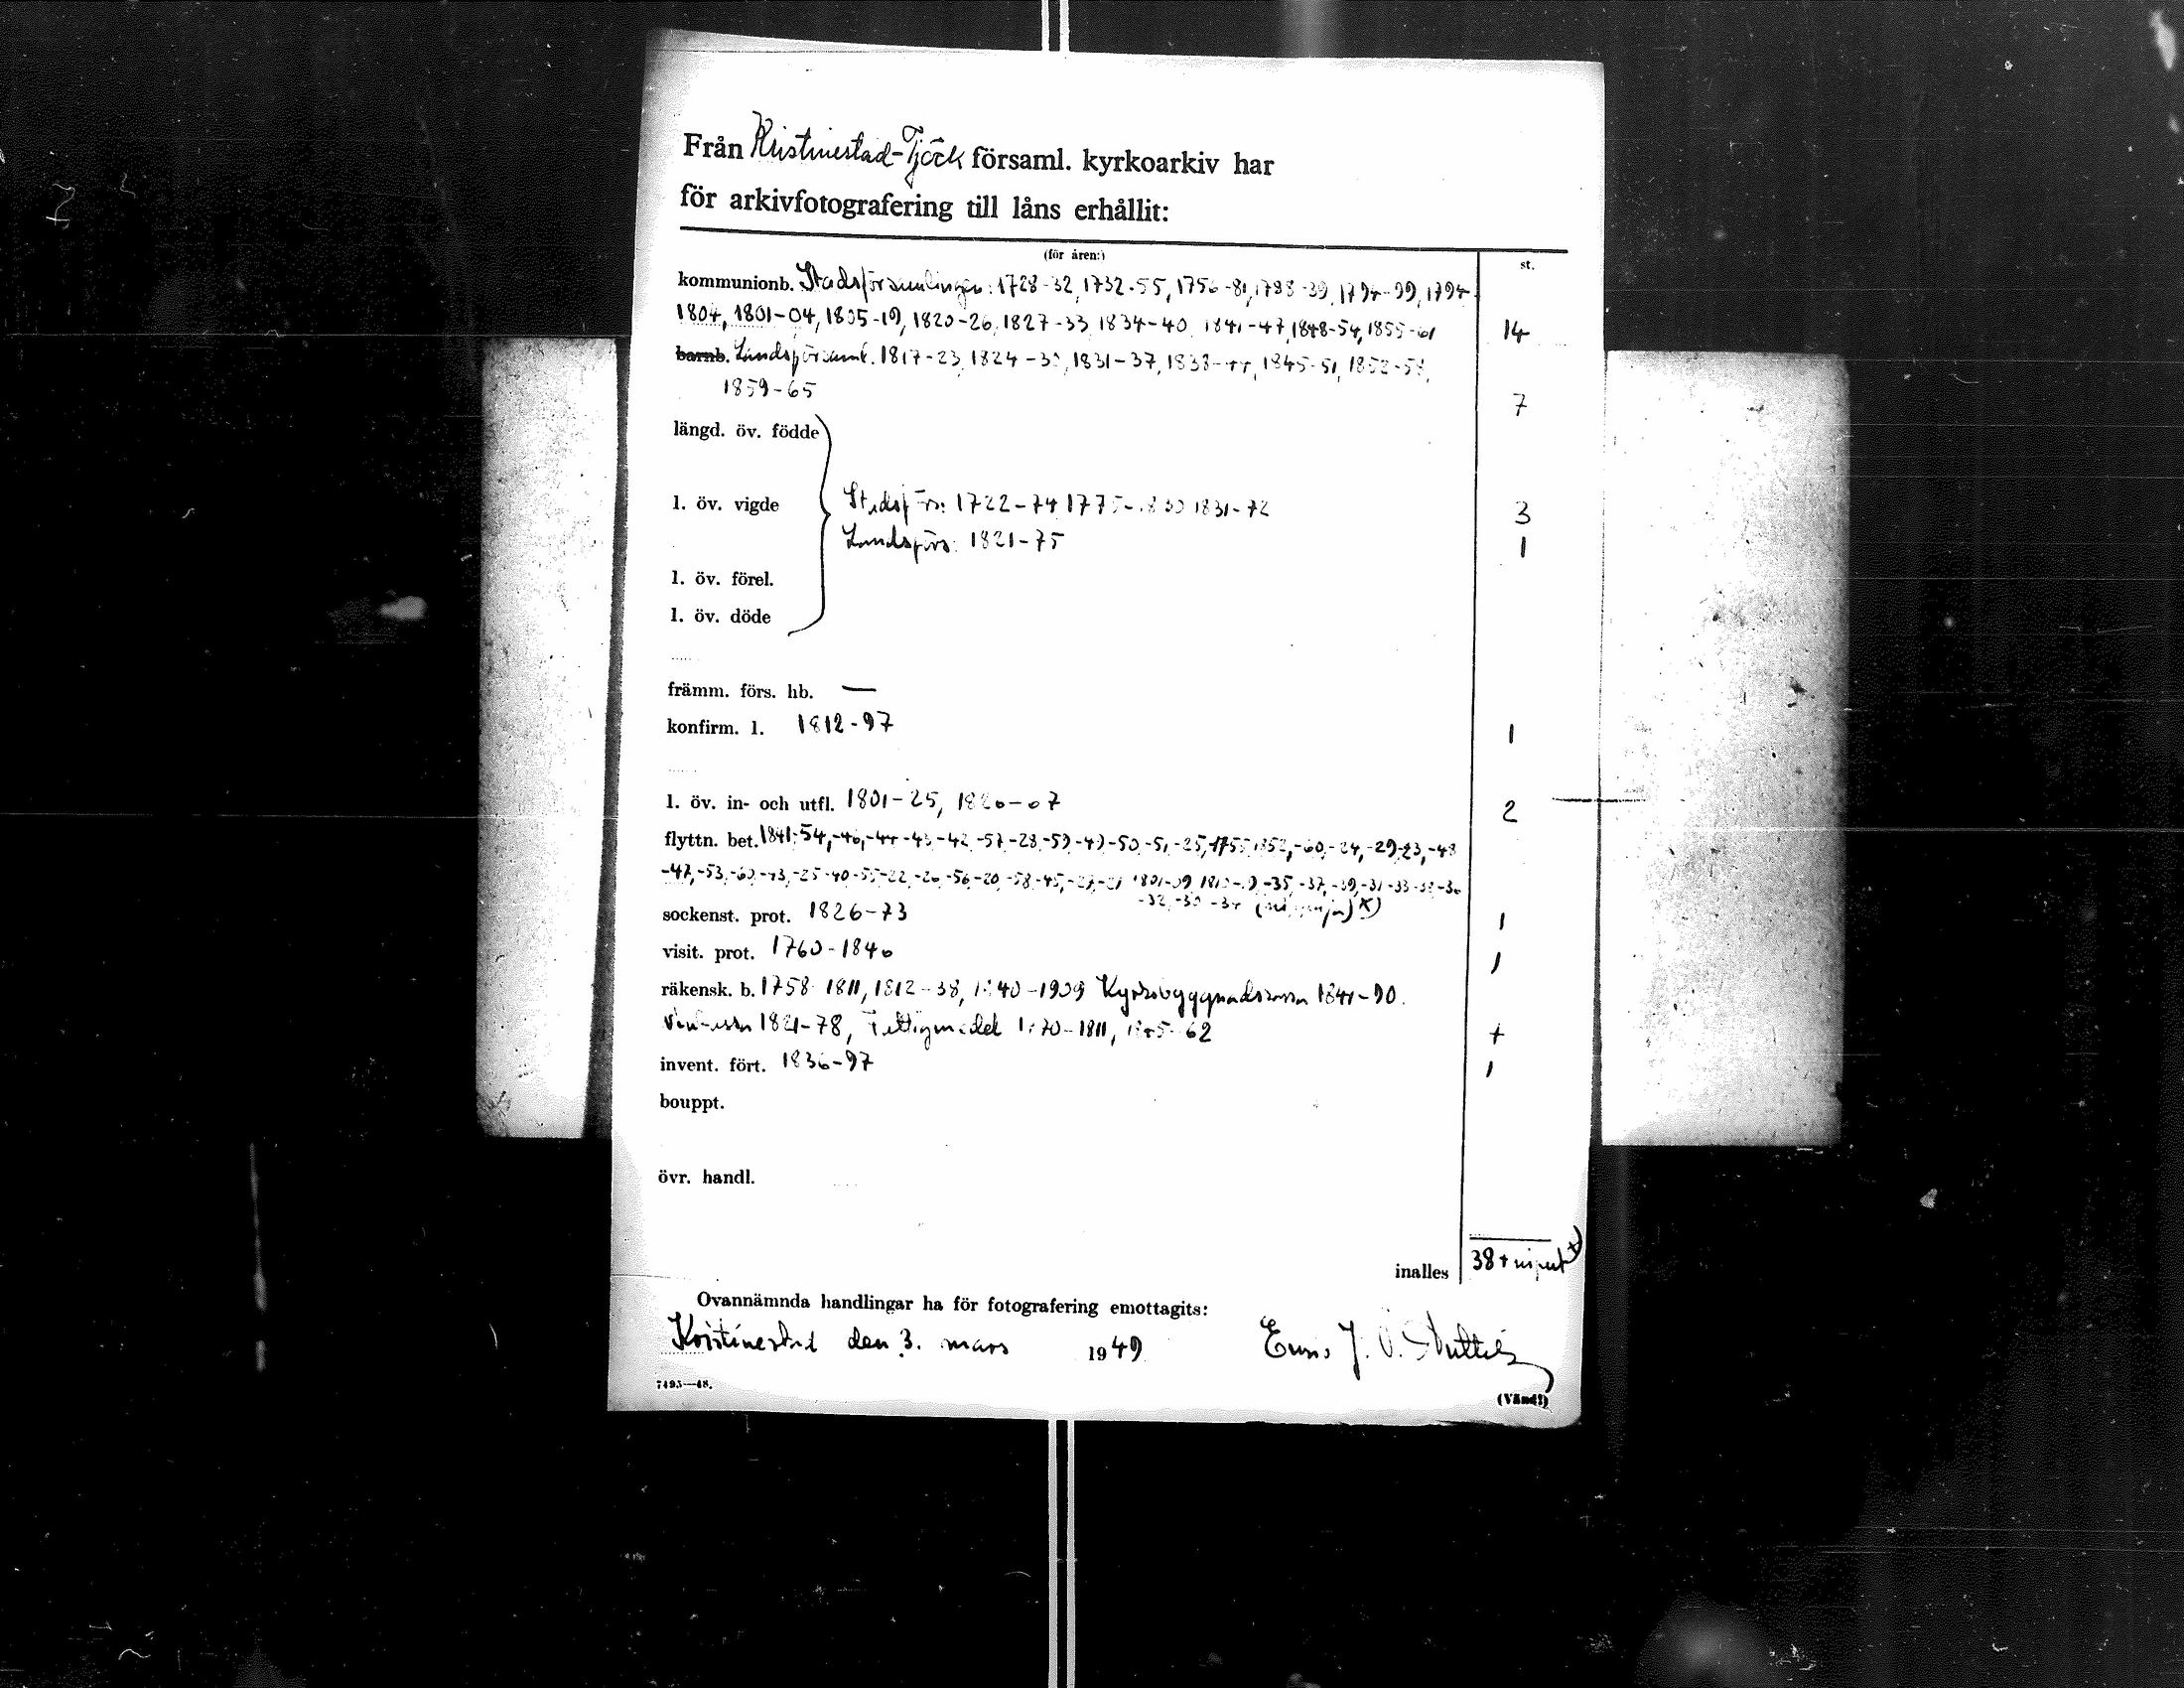 Från Kristinestad-Tjöck församl. kyrkoarkiv har
för arkivfotografering till låns erhållit:
(för åren:)
st.
kommunionb. Stadsförsamlingen: 1728-32, 1732-55, 1756-81, 1788-39, 1794-99, 1794-
1804, 1801-04, 1805-19, 1820-26, 1827-33 1834-40 1841-47, 1848-54, 1855-61 14
barnb. Landsförsaml. 1817-23, 1824-30, 1831-37, 1838-44, 1845-51, 1852-58,
1859-65 7
längd. öv. födde
l. öv. vigde Stadsförs: 1722-74 1775-1830 1831-72 3
Landsförs: 1821-75 1
l. öv. förel.
l. öv. döde
främm. förs. hb. —
konfirm. l. 1812-97 1
l. öv. in- och utfl. 1801-25, 2
flyttn. bet. 1841, -54, -46, -44 -43 -42 -57, -28, -59, -49, -50, -51, -25, 1852, -60, -24, -29, -23, -48
-47, -53, -60, -43, -25 -40 -55 -22, -26, -56 -20, -58, -45, 1801-09, -35, -37, -39, -31 -33
-32, -30 -34
sockenst. prot. 1826-73 1
visit. prot. 1760-1840 1
räkensk. b. 1758-1811, 1812-38, 1840-1909 Kyrkobyggnadskassa 1841-90.
1821-78, Fattigmedel
invent. fört. 1836-97 1
bouppt.
övr. handl.
inalles 38 +
Ovannämnda handlingar ha för fotografering emottagits:
Kristinestad den 3. mars 1949
7495—48.
(Vänd!)